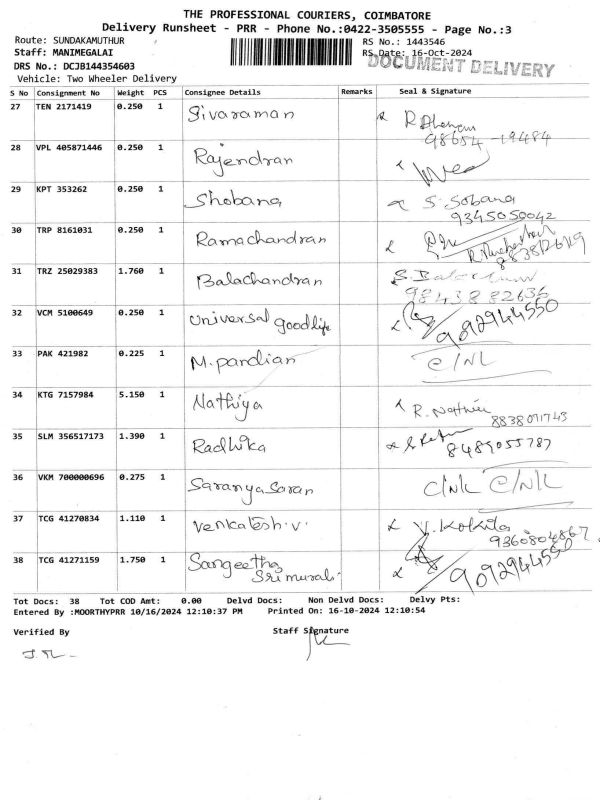 THE PROFESSIONAL COURIERS, COIMBATORE
Delivery Runsheet - PRR - Phone No.:0422-3505555 - Page No.:3
Route: SUNDAKAMUTHUR RS No.: 1443546
Staff: MANIMEGALAI RS Date: 16-Oct-2024
DOCUMENT DELIVERY
DRS No.: DCJB144354603
Vehicle: Two Wheeler Delivery
S No Consignment No Weight PCS Consignee Details Remarks Seal & Signature
27 TEN 2171419 0.250 1 Sivaraman
98654-19484
28 VPL 405871446 0.250 1 Rajendran
29 KPT 353262 0.250 1 Shobana S. Sobana
9345050042
30 TRP 8161031 0.250 1 Ramachandran
31 TRZ 25029383 1.760 1 Balachandran
9843882636
32 VCM 5100649 0.250 1 Universal goodlife 9092944550
33 PAK 421982 0.225 1 M. pandian C/NL
34 KTG 7157984 5.150 1 Nathiya R. Nathiya
8838071743
35 SLM 356517173 1.390 1 Radhika
8489055787
36 VKM 700000696 0.275 1 Saranya Saran C/NL C/NL
37 TCG 41270834 1.110 1 Venkatesh.V. V. Kokila
9360804867
38 TCG 41271159 1.750 1 Sangeetha
Srimurali 9092944550
Tot Docs: 38 Tot COD Amt: 0.00 Delvd Docs: Non Delvd Docs: Delvy Pts:
Entered By :MOORTHYPRR 10/16/2024 12:10:37 PM Printed On: 16-10-2024 12:10:54
Verified By Staff Signature